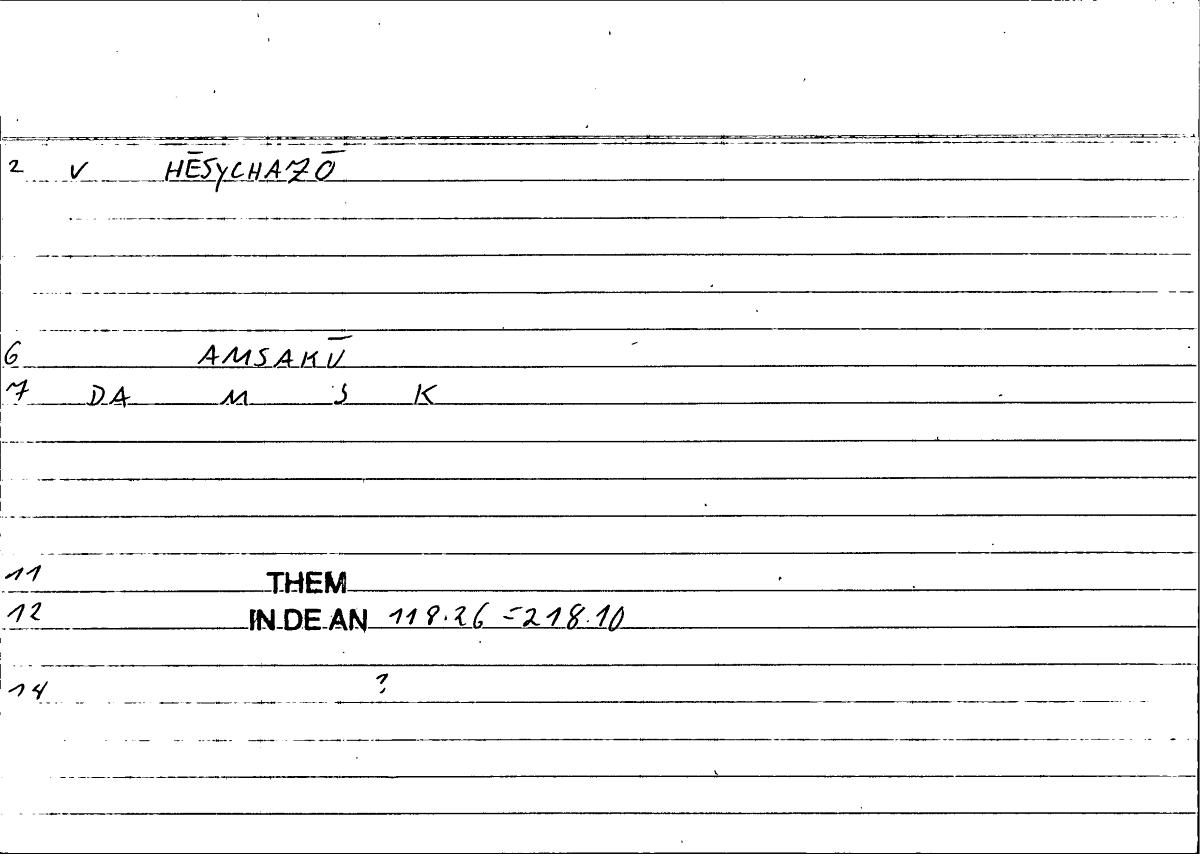 2 V HĒSYCHAZŌ
6 AMSAKŪ
7 DA M S K
11 THEM
12 IN DE AN 118.26 = 218.10
14 ?